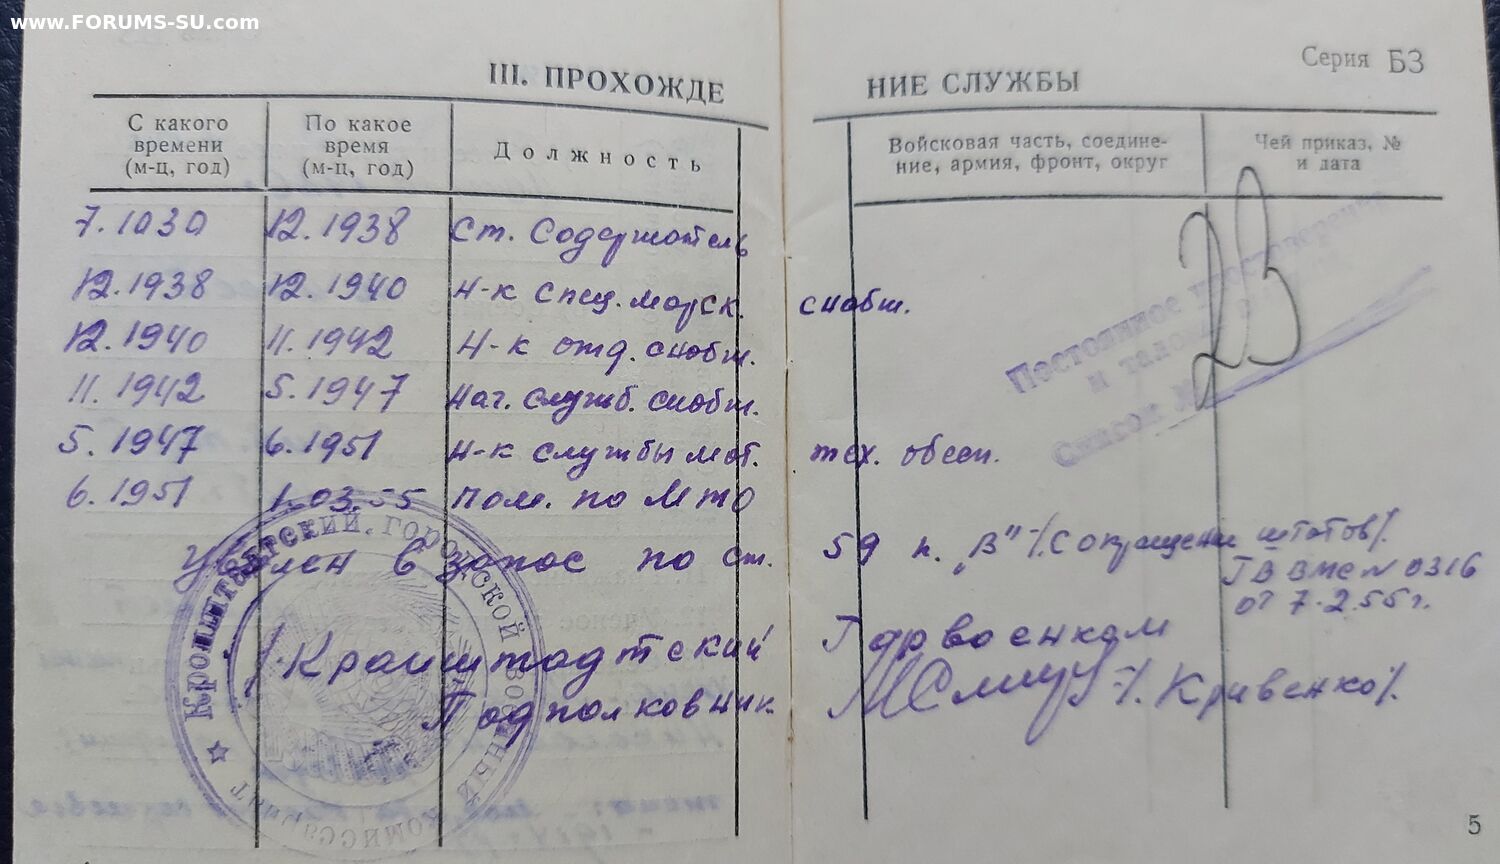 www.FORUMS-SU.com
Серия БЗ
III. ПРОХОЖДЕНИЕ СЛУЖБЫ
С какого времени (м-ц, год)
По какое время (м-ц, год)
Должность
Войсковая часть, соединение, армия, фронт, округ
Чей приказ, № и дата
7.1030 12.1938 Ст. Содержатель
12.1938 12.1940 Н-к спец. морск. снабж.
12.1940 11.1942 Н-к отд. снабж.
11.1942 5.1947 Нач. служб. снабж.
5.1947 6.1951 Н-к службы мат. тех. обесп.
6.1951 1.03.55 Пом. по МТО
Уволен в запас по ст. 59 п. „В" /Сокращени штатов/.
ГВ ВМБ № 0316
от 7.2.55г.
Кронштадтский Горвоенком
Подполковник /Кривенко/.
23
Постоянное удостоверение
и талоны
Список №
Кронштадтский городской военный комиссариат
5